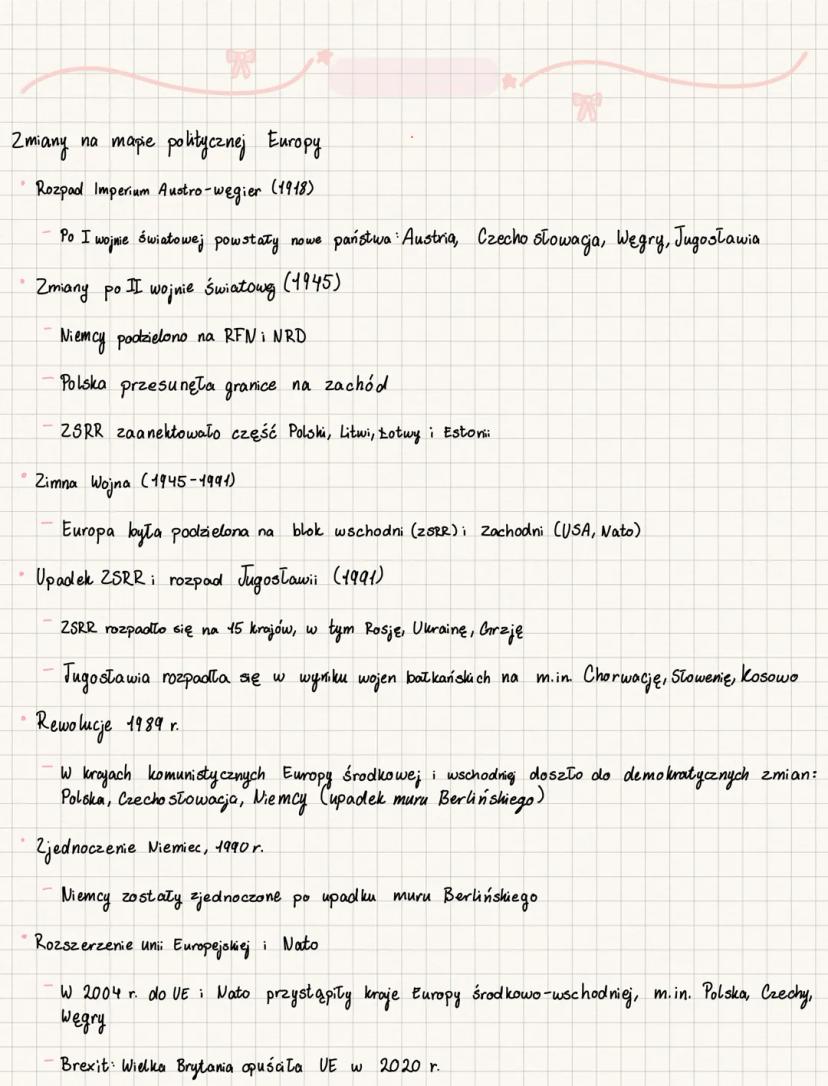 Zmiany na mapie politycznej Europy
Rozpad Imperium Austro-węgier (1918)
- Po I wojnie światowej powstały nowe państwa: Austria, Czechosłowacja, Węgry, Jugosławia
Zmiany po II wojnie światową (1945)
- Niemcy podzielono na RFN i NRD
- Polska przesunęła granice na zachód
- ZSRR zaanektowało część Polski, Litwi, Łotwy i Estonii
Zimna Wojna (1945-1991)
- Europa była podzielona na blok wschodni (ZSRR) i zachodni (USA, Nato)
Upadek ZSRR i rozpad Jugosławii (1991)
- ZSRR rozpadło się na 15 krajów, w tym Rosję, Ukrainę, Grzję
- Jugosławia rozpadła się w wyniku wojen bałkańskich na m.in. Chorwację, Słowenię, Kosowo
Rewolucje 1989 r.
- W krajach komunistycznych Europy środkowej i wschodniej doszło do demokratycznych zmian:
Polska, Czechosłowacja, Niemcy (upadek muru Berlińskiego)
Zjednoczenie Niemiec, 1990 r.
- Niemcy zostały zjednoczone po upadku muru Berlińskiego
Rozszerzenie unii Europejskiej i Nato
- W 2004 r. do UE i Nato przystąpiły kraje Europy środkowo-wschodniej, m.in. Polska, Czechy,
Węgry
- Brexit: Wielka Brytania opuściła UE w 2020 r.